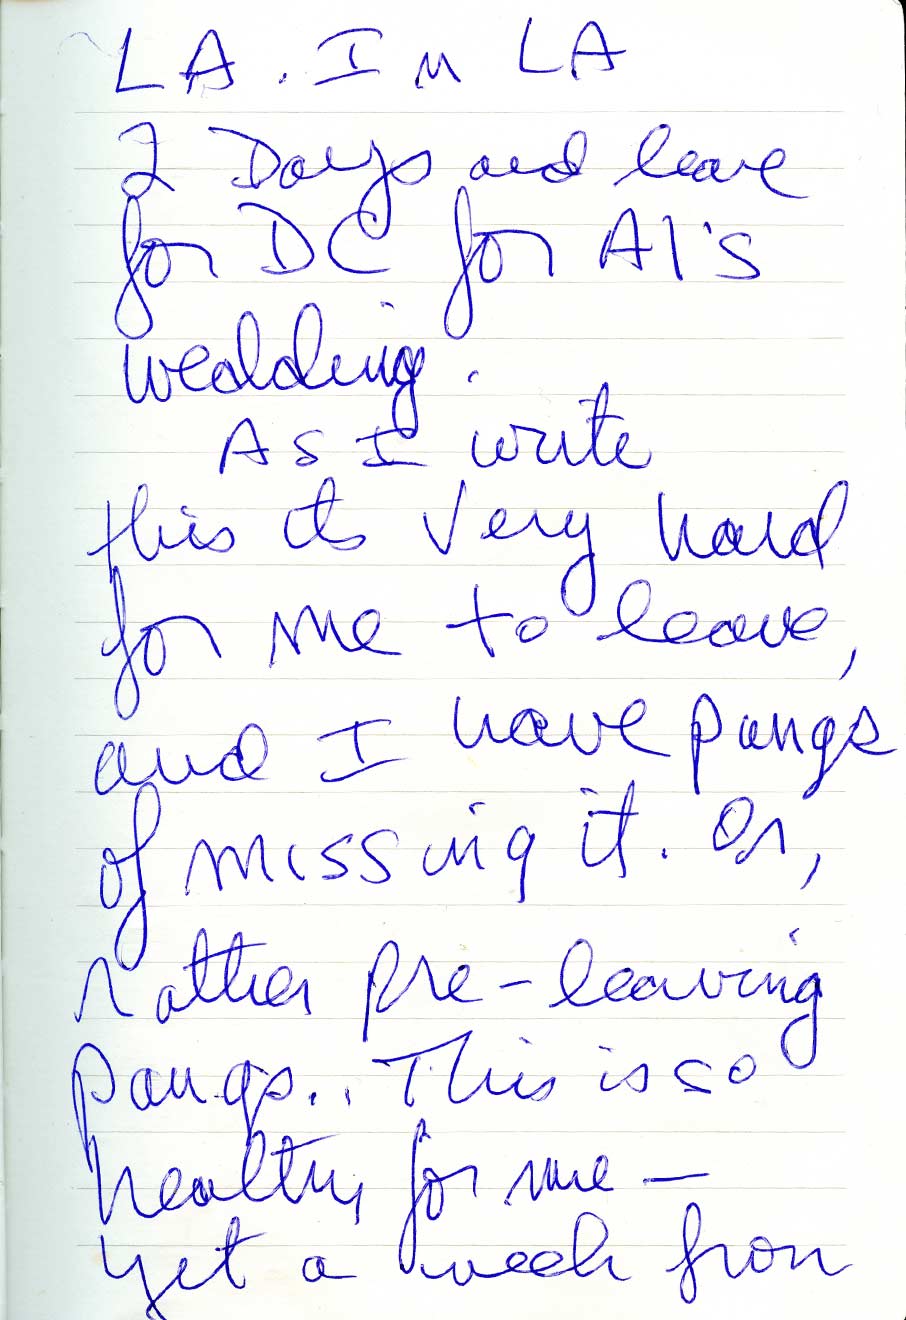 LA. Im LA
2 Days and leave
for DC for Al's
wedding.
As I write
this its very hard
for me to leave,
and I have pangs
of missing it. Or,
rather pre-leaving
pangs.. This is so
healthy for me —
yet a week from